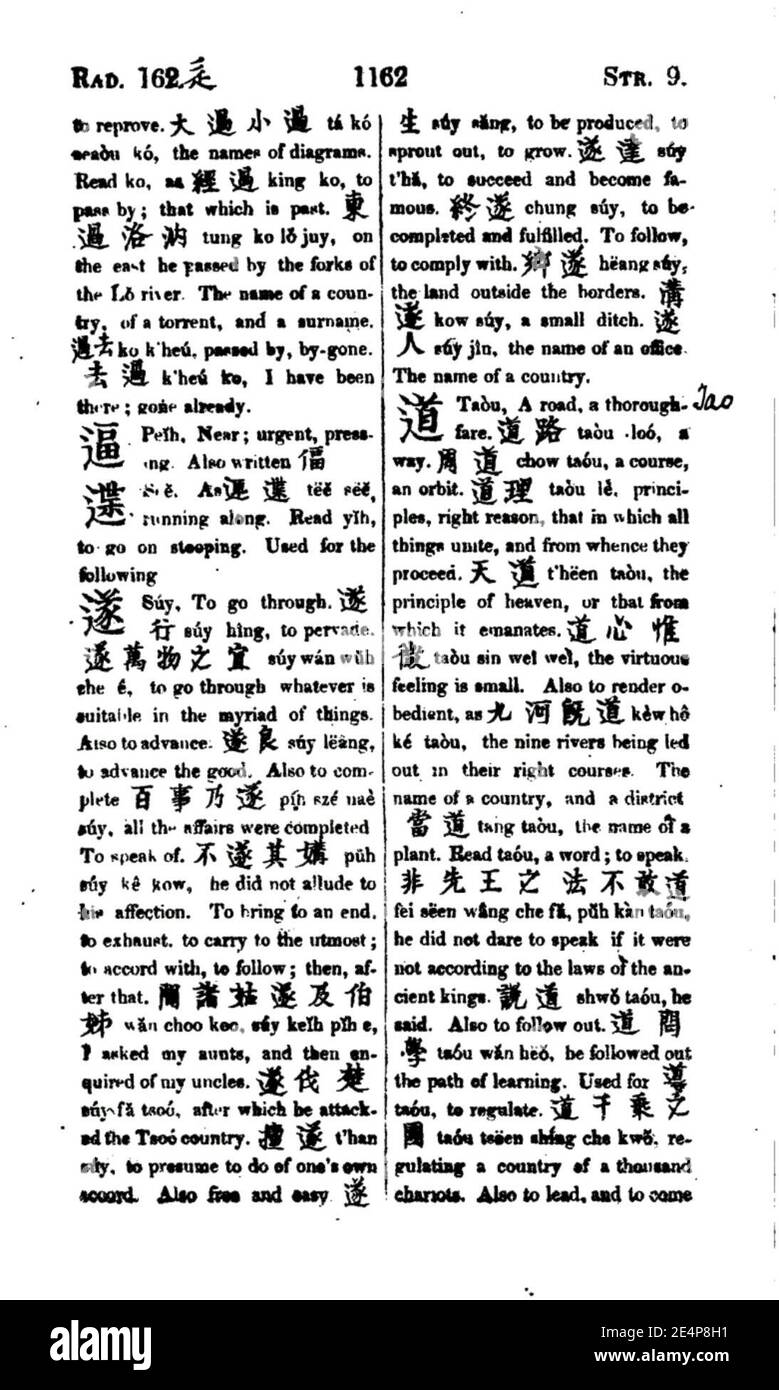 RAD. 162. 辵 1162 STR. 9.
to reprove. 大過小過 tá kó
seaòu kó, the names of diagrams.
Read ko, as 經過 king ko, to
pass by; that which is past. 東
過洛汭 tung ko lŏ juy, on
the east he passed by the forks of
the Lŏ river. The name of a coun-
try, of a torrent, and a surname.
過去 ko k'heú, passed by, by-gone.
去過 k'heú ko, I have been
there; gone already.
逼 Peĭh, Near; urgent, press-
ing. Also written 偪
遪 As tëĕ sëĕ,
running along. Read yĭh,
to go on stooping. Used for the
following
遂 Súy, To go through. 遂
行 súy hîng, to pervade.
遂萬物之宜 súy wán wŭh
che é, to go through whatever is
suitable in the myriad of things.
Also to advance. 遂良 súy lëâng,
to advance the good. Also to com-
plete 百事乃遂 pĭh szé naè
súy, all the affairs were completed
To speak of. 不遂其媾 pŭh
súy kê kow, he did not allude to
his affection. To bring to an end,
to exhaust, to carry to the utmost;
to accord with, to follow; then, af-
ter that. 問諸姑遂及伯
姊 wăn choo koo, súy keĭh pĭh e,
I asked my aunts, and then en-
quired of my uncles. 遂伐楚
súy fă tsoó, after which he attack-
ed the Tsoó country. 擅遂 t'han
súy, to presume to do of one's own
accord. Also free and easy 遂
生 súy săng, to be produced, to
sprout out, to grow. 遂達 súy
t'hă, to succeed and become fa-
mous. 終遂 chung súy, to be
completed and fulfilled. To follow,
to comply with. 鄉遂 hëang súy,
the land outside the borders. 溝
遂 kow súy, a small ditch. 遂
人 súy jîn, the name of an office.
The name of a country.
道 Taòu, A road, a thorough- Tao
fare. 道路 taòu loó, a
way. 周道 chow taóu, a course,
an orbit. 道理 taòu lè, princi-
ples, right reason, that in which all
things unite, and from whence they
proceed. 天道 t'hëen taòu, the
principle of heaven, or that from
which it emanates. 道心惟
微 taòu sin weî weî, the virtuous
feeling is small. Also to render o-
bedient, as 九河旣道 kèw hô
ké taòu, the nine rivers being led
out in their right courses. The
name of a country, and a district
當道 tang taòu, the name of a
plant. Read taóu, a word; to speak.
非先王之法不敢道
fei sëen wâng che fă, pŭh kàn taóu,
he did not dare to speak if it were
not according to the laws of the an-
cient kings. 說道 shwŏ taóu, he
said. Also to follow out. 道問
學 taóu wăn hëŏ, he followed out
the path of learning. Used for 導
taóu, to regulate. 道千乘之
國 taóu tsëen shíng che kwŏ, re-
gulating a country of a thousand
chariots. Also to lead, and to come
alamy
Image ID: 2E4P8H1
www.alamy.com